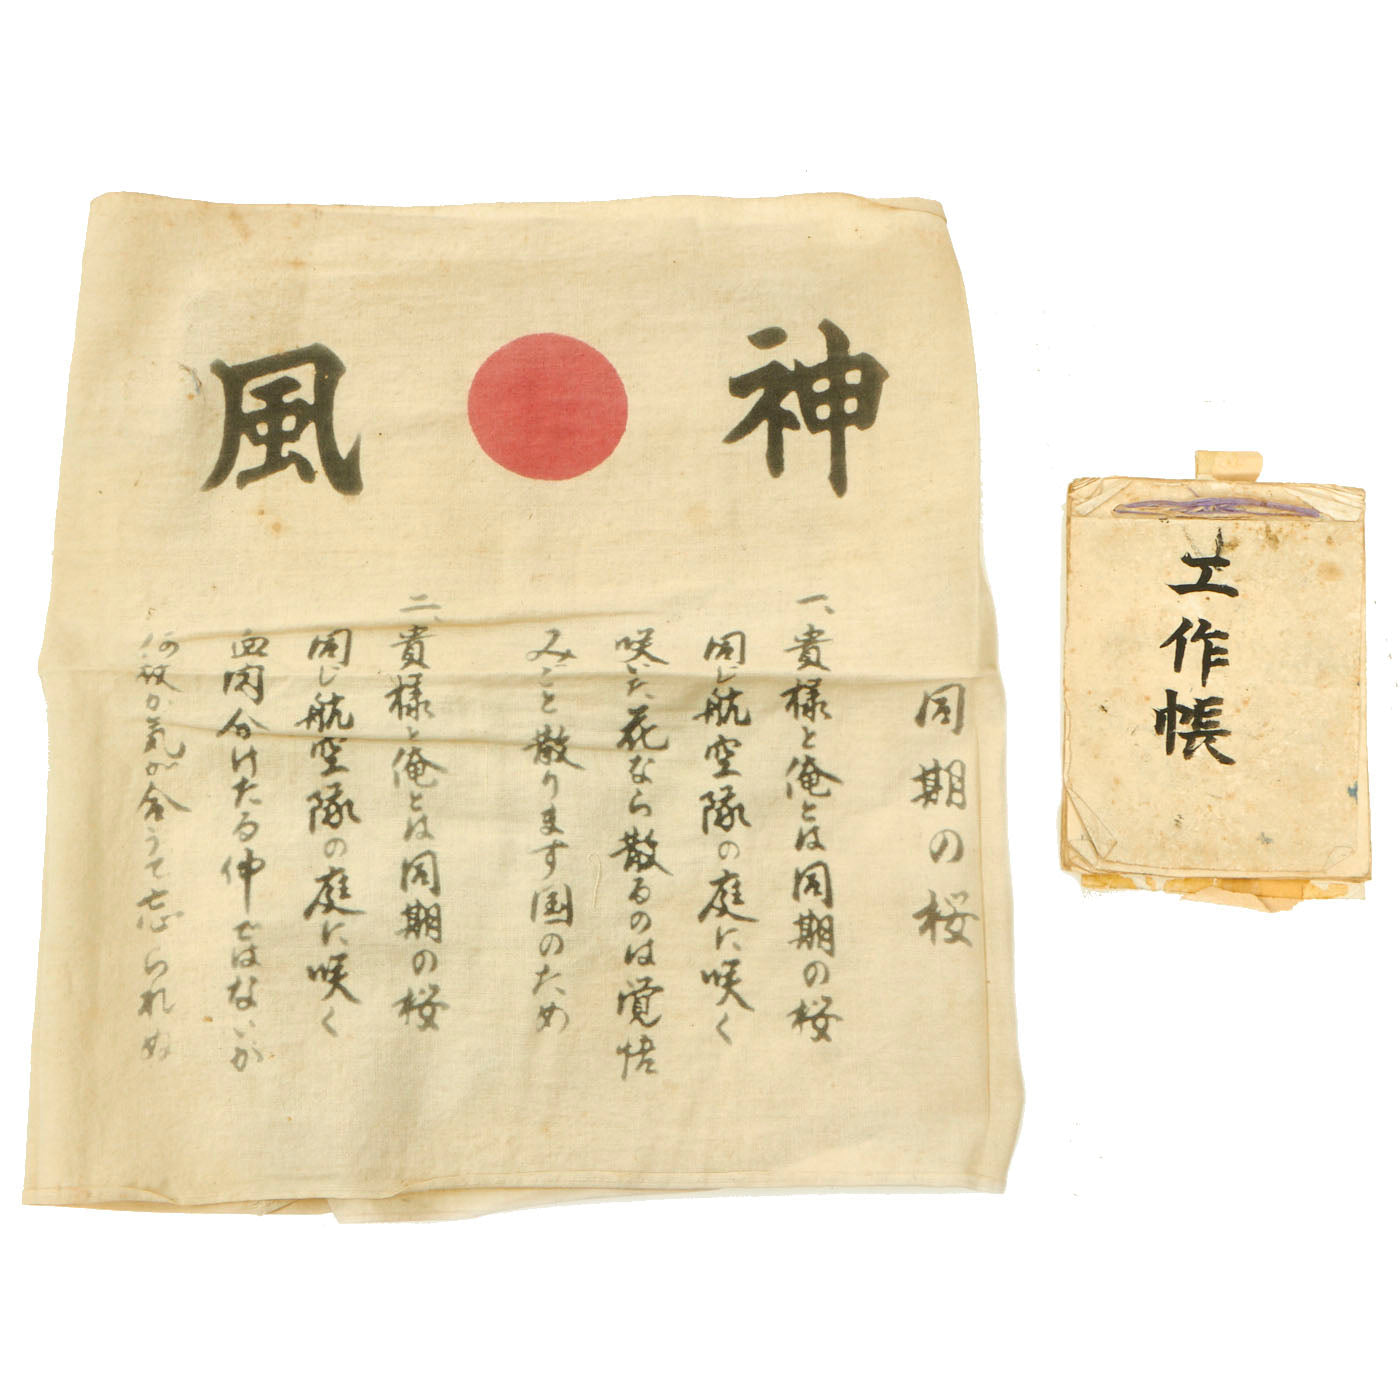 神風
同期の桜
一、貴様と俺とは同期の桜
同じ航空隊の庭に咲く
咲いた花なら散るのは覚悟
みごと散ります国のため
二、貴様と俺とは同期の桜
同じ航空隊の庭に咲く
血肉分けたる仲ではないが
何故か気が合うて忘られぬ
工作帳